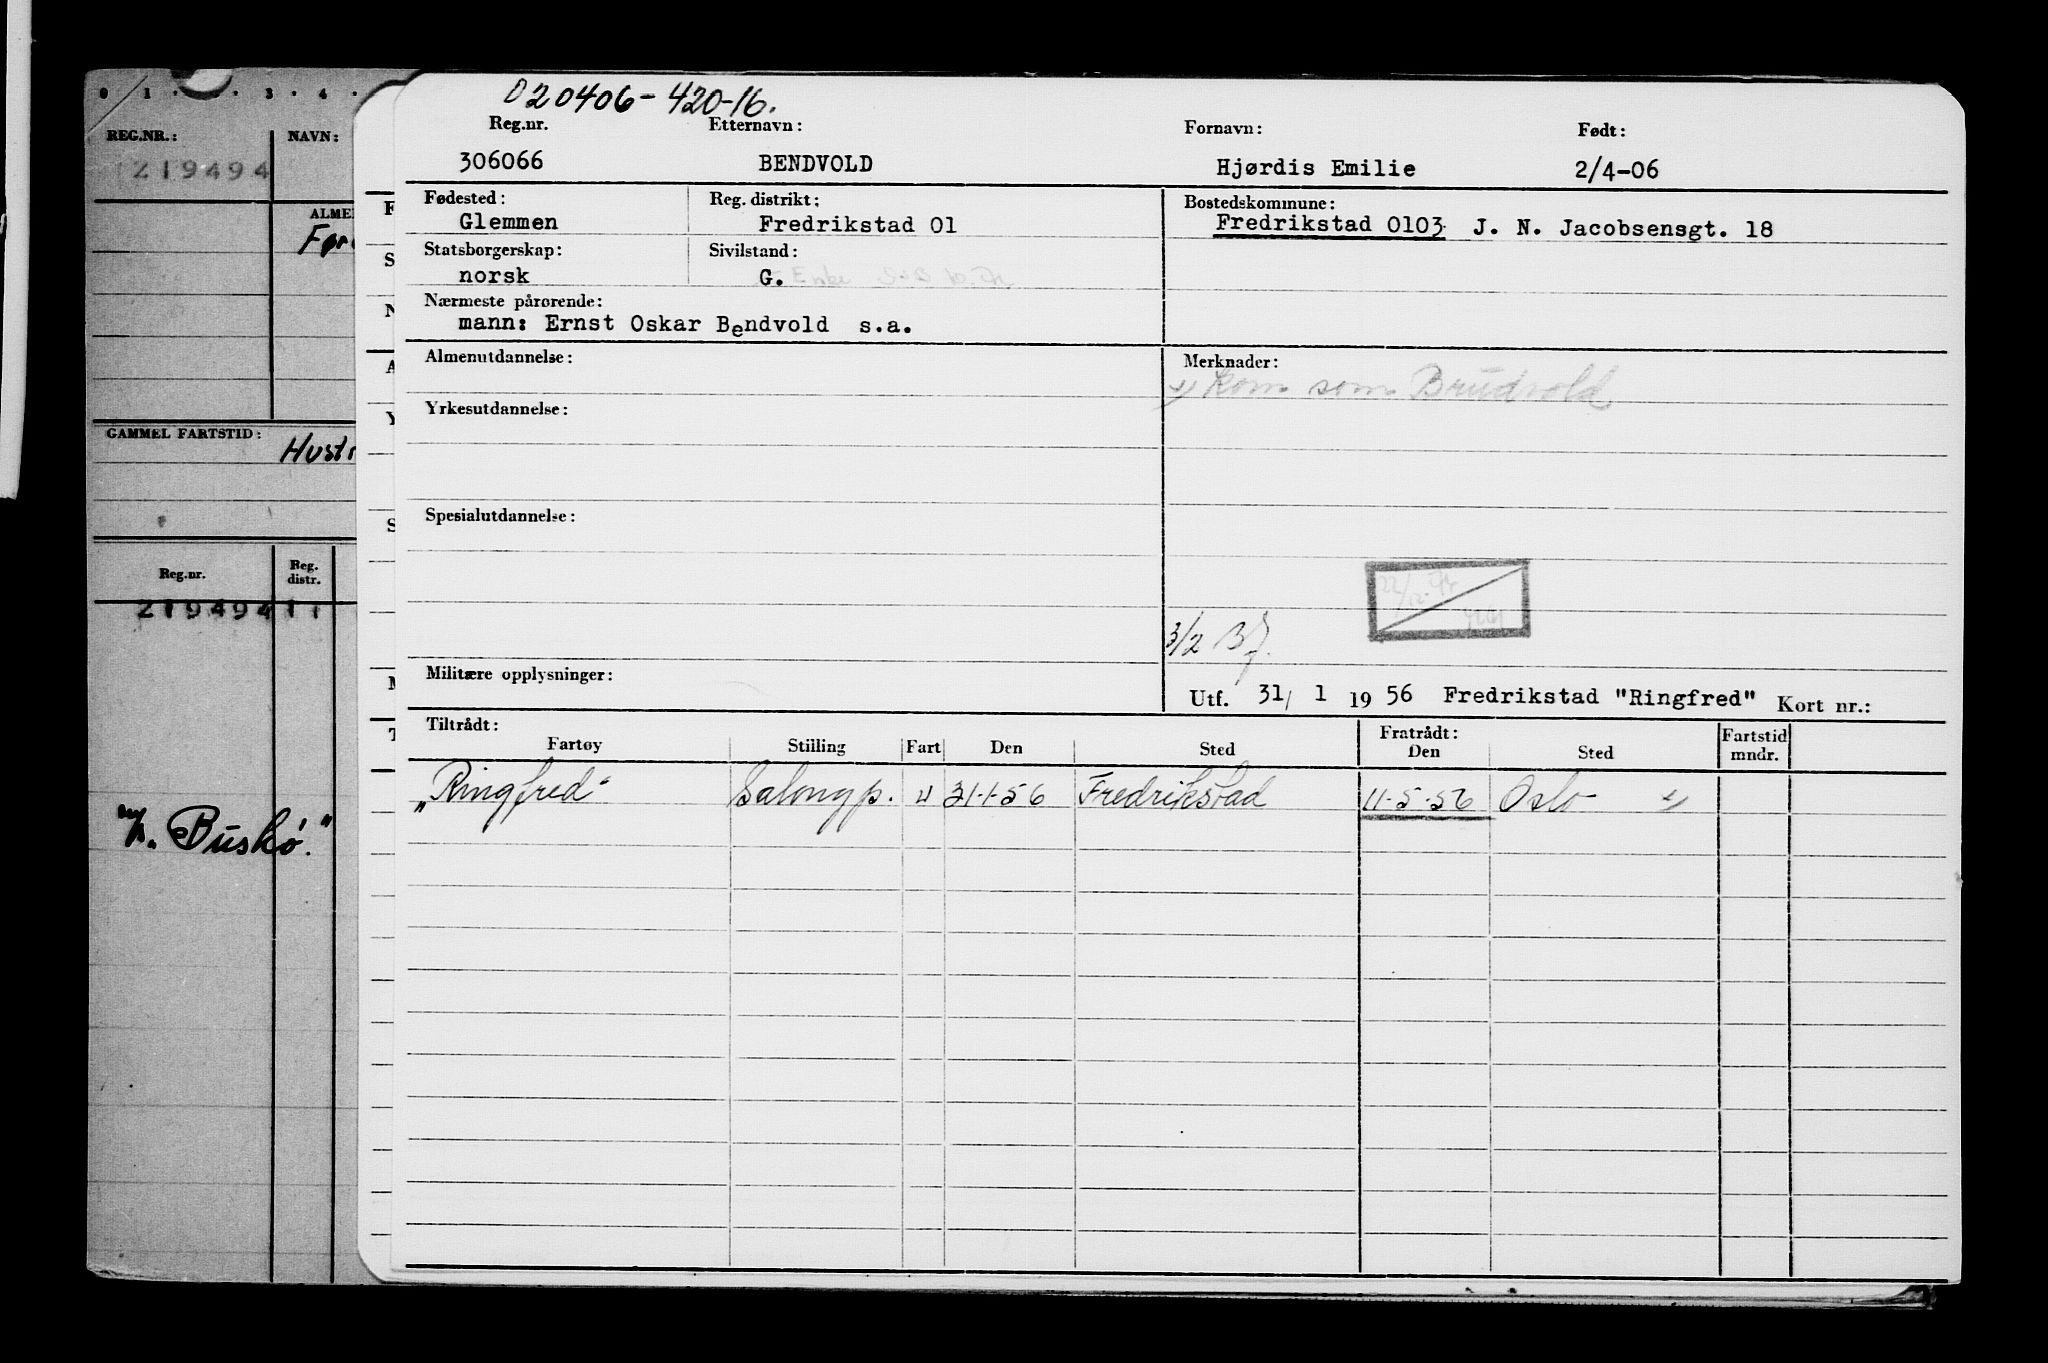 0 1 . . 3 . 4 .
REG.NR.: NAVN:
219494
ALME
Før
GAMMEL FARTSTID:
Hust
Reg.nr. Reg. distr.
219494 11
m/s. Buskø."
020406-420-16.
Reg.nr. Etternavn: Fornavn: Født:
306066 BENDVOLD Hjørdis Emilie 2/4-06
Fødested: Reg. distrikt: Bostedskommune:
Glemmen Fredrikstad 01 Fredrikstad 0103 J. N. Jacobsensgt. 18
Statsborgerskap: Sivilstand:
norsk G. Enke
Nærmeste pårørende:
mann: Ernst Oskar Bendvold s.a.
Almenutdannelse: Merknader:
x) Kom som Brudvold
Yrkesutdannelse:
Spesialutdannelse:
22/12.
3/2 BJ.
Militære opplysninger:
Utf. 31/ 1 19 56 Fredrikstad "Ringfred" Kort nr.:
Tiltrådt: Fratrådt: Fartstid
Fartøy Stilling Fart Den Sted Den Sted mndr.
"Ringfred" Salongp. u 31-1-56 Fredrikstad 11-5-56 Oslo x)